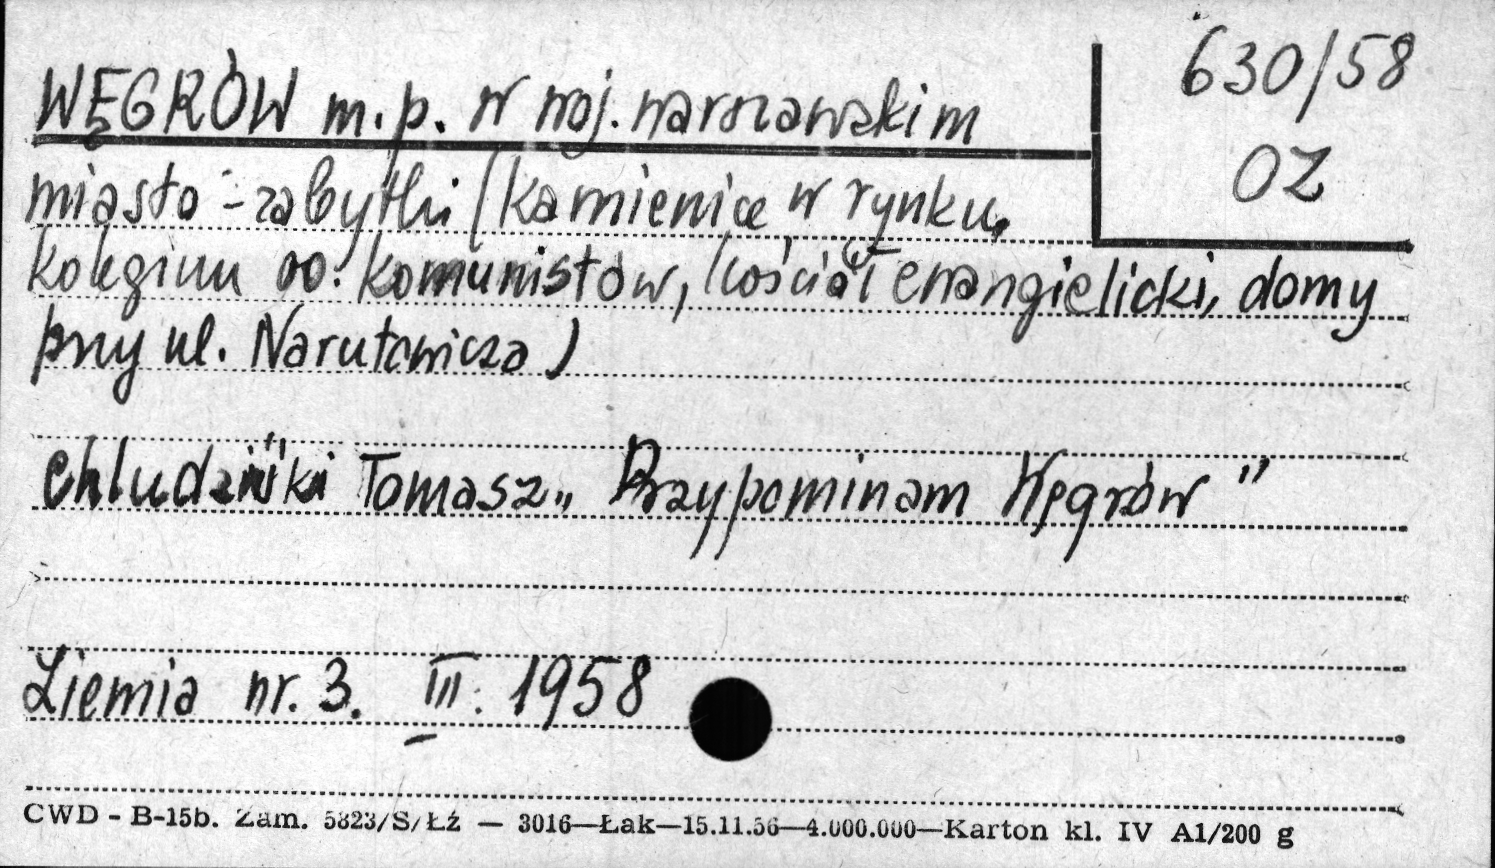 630/58
WĘGRÓW m.p. w woj. warszawskim
OZ
miasto - zabytki (Kamienice w rynku,
Kolegium oo. Komunistów, kościół ewangielicki, domy
przy ul. Narutowicza)
Chludziński Tomasz „Przypominam Węgrów”
Ziemia nr. 3. III. 1958
CWD - B-15b. Zam. 5823/S/Łź — 3016—Łak—15.11.56—4.000.000—Karton kl. IV A1/200 g